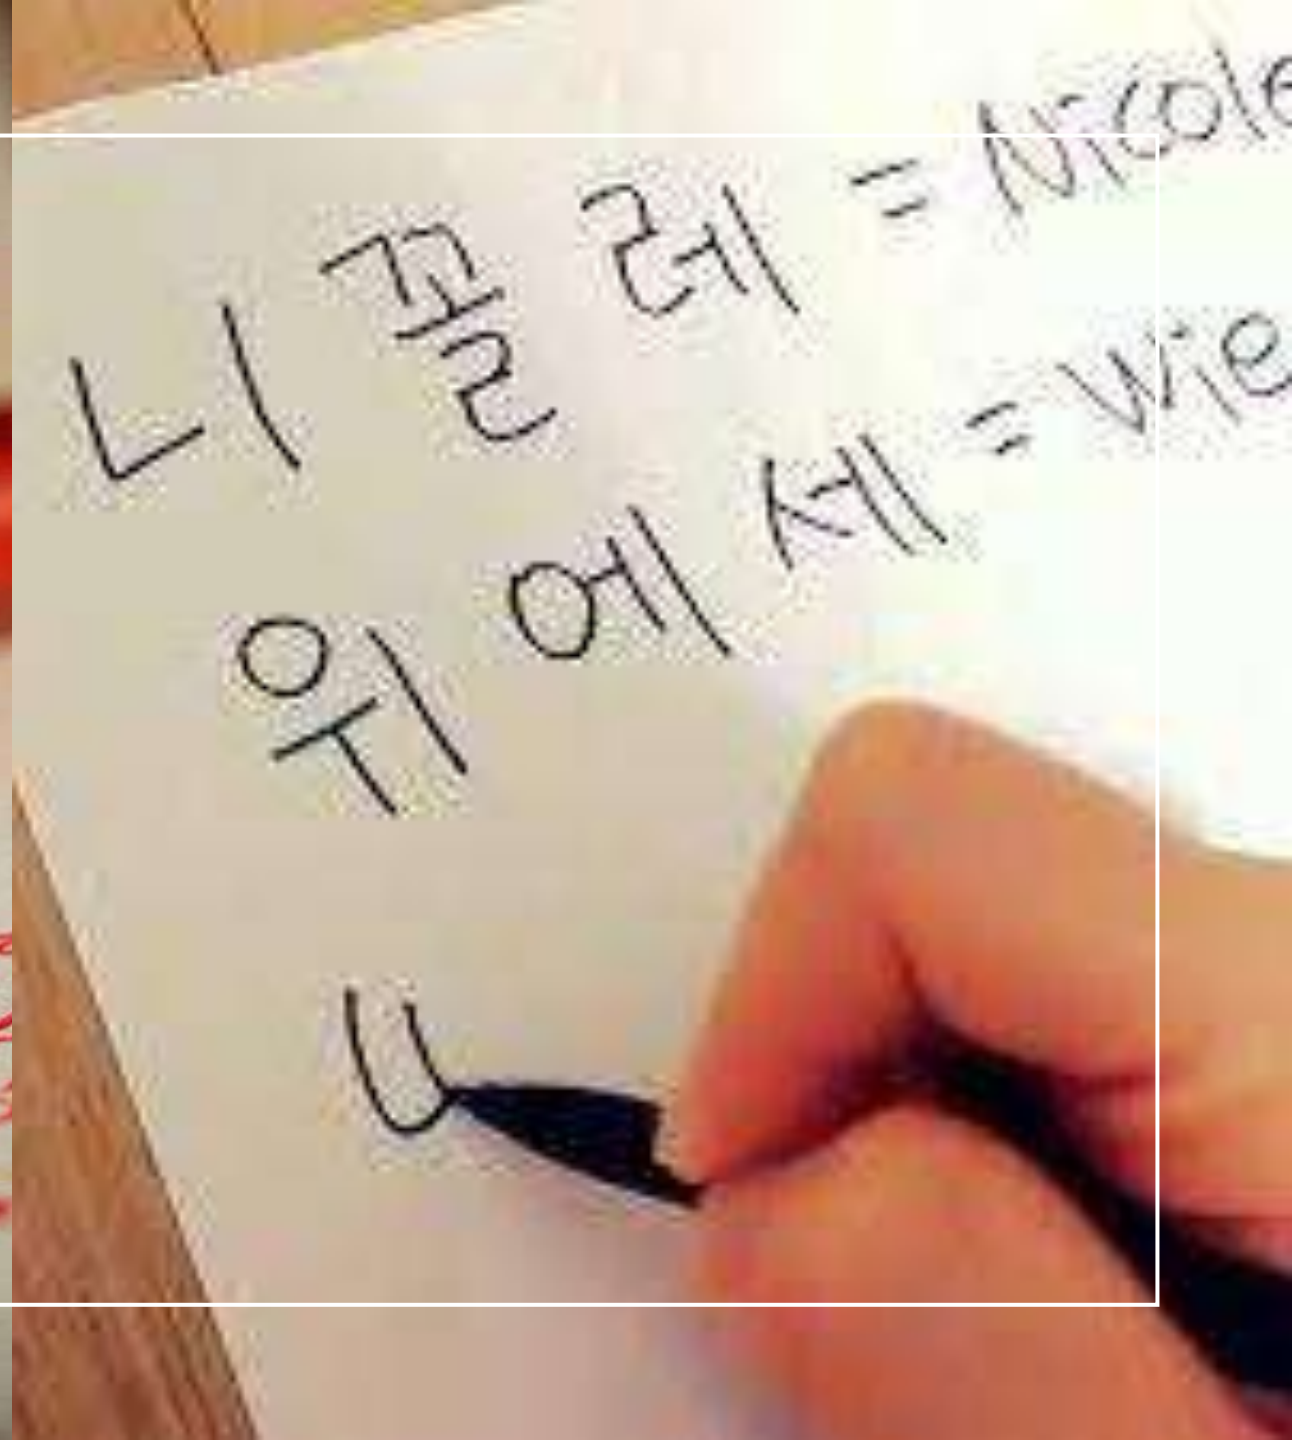 니 꼴 레 = Nicole
위 에 세 = Wie
U